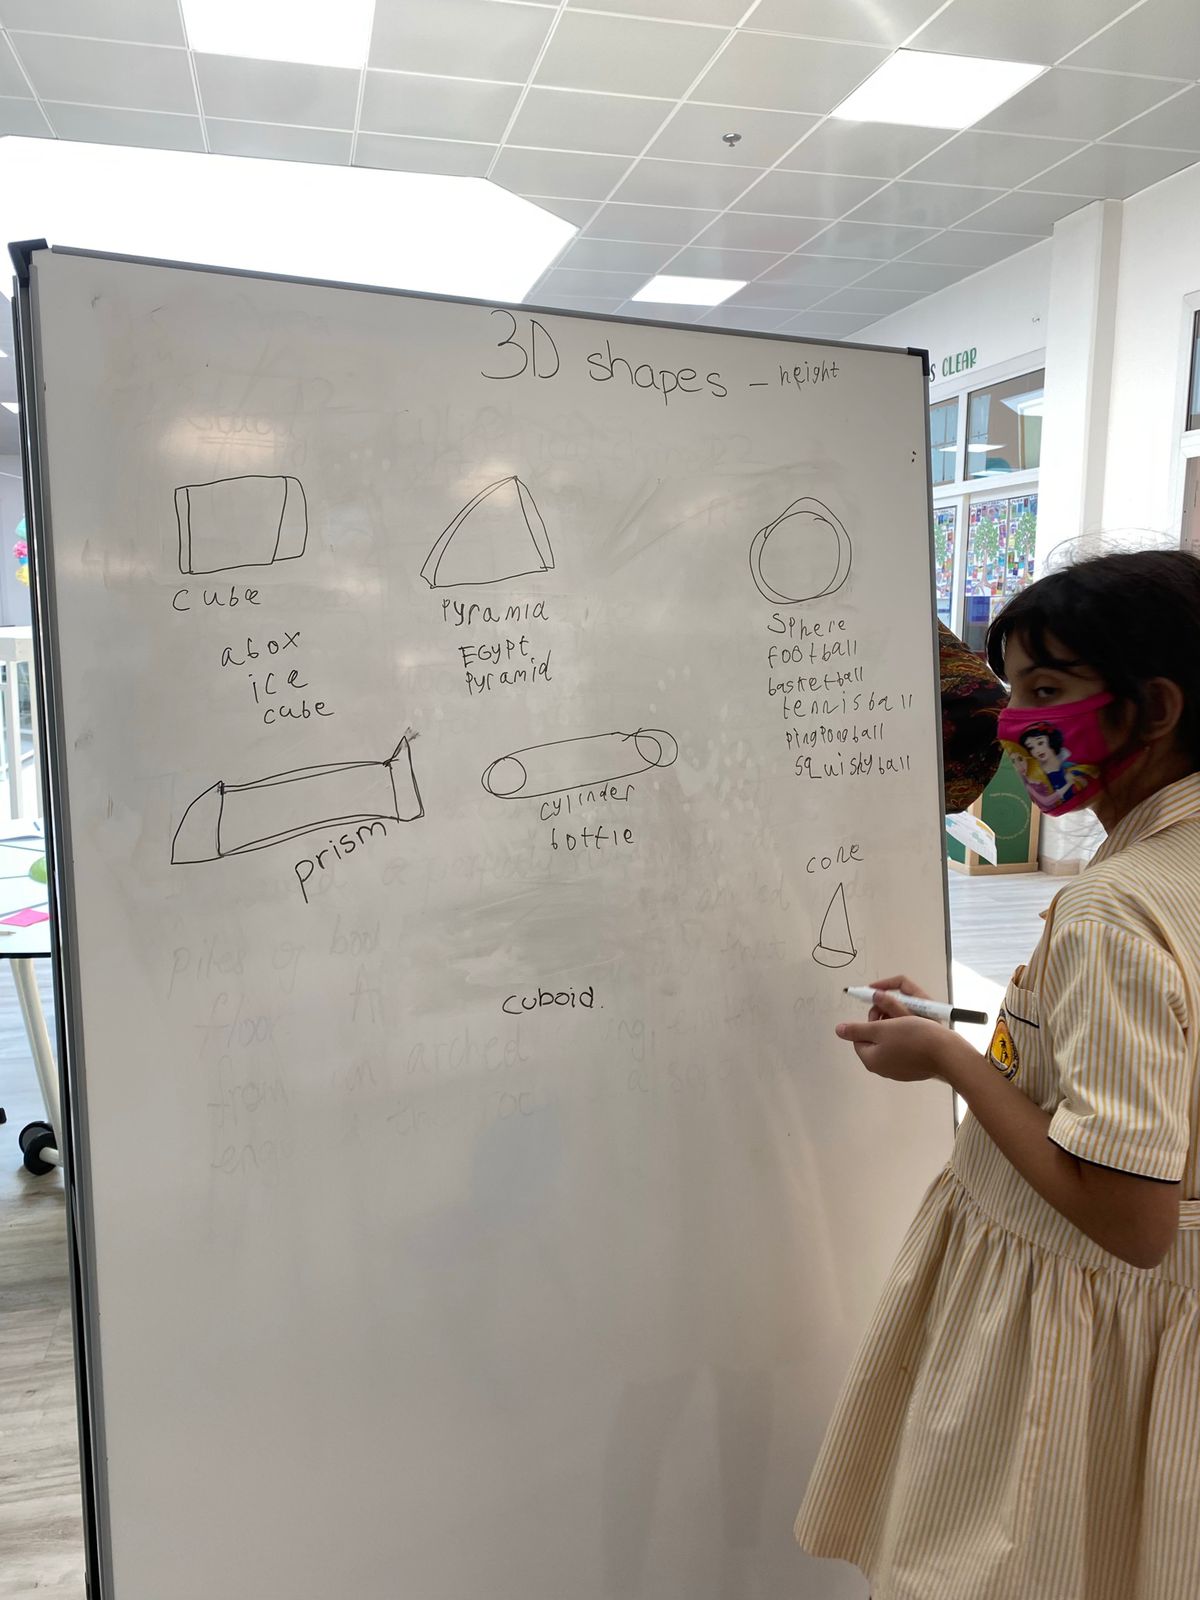 3D shapes - height
cube
a box
ice
cube
pyramid
EGypt
pyramid
Sphere
football
basketball
tennis ball
Pingpong ball
squishy ball
prism
cylinder
bottle
cone
cuboid.
piles of boo
floor
from an arched
CLEAR